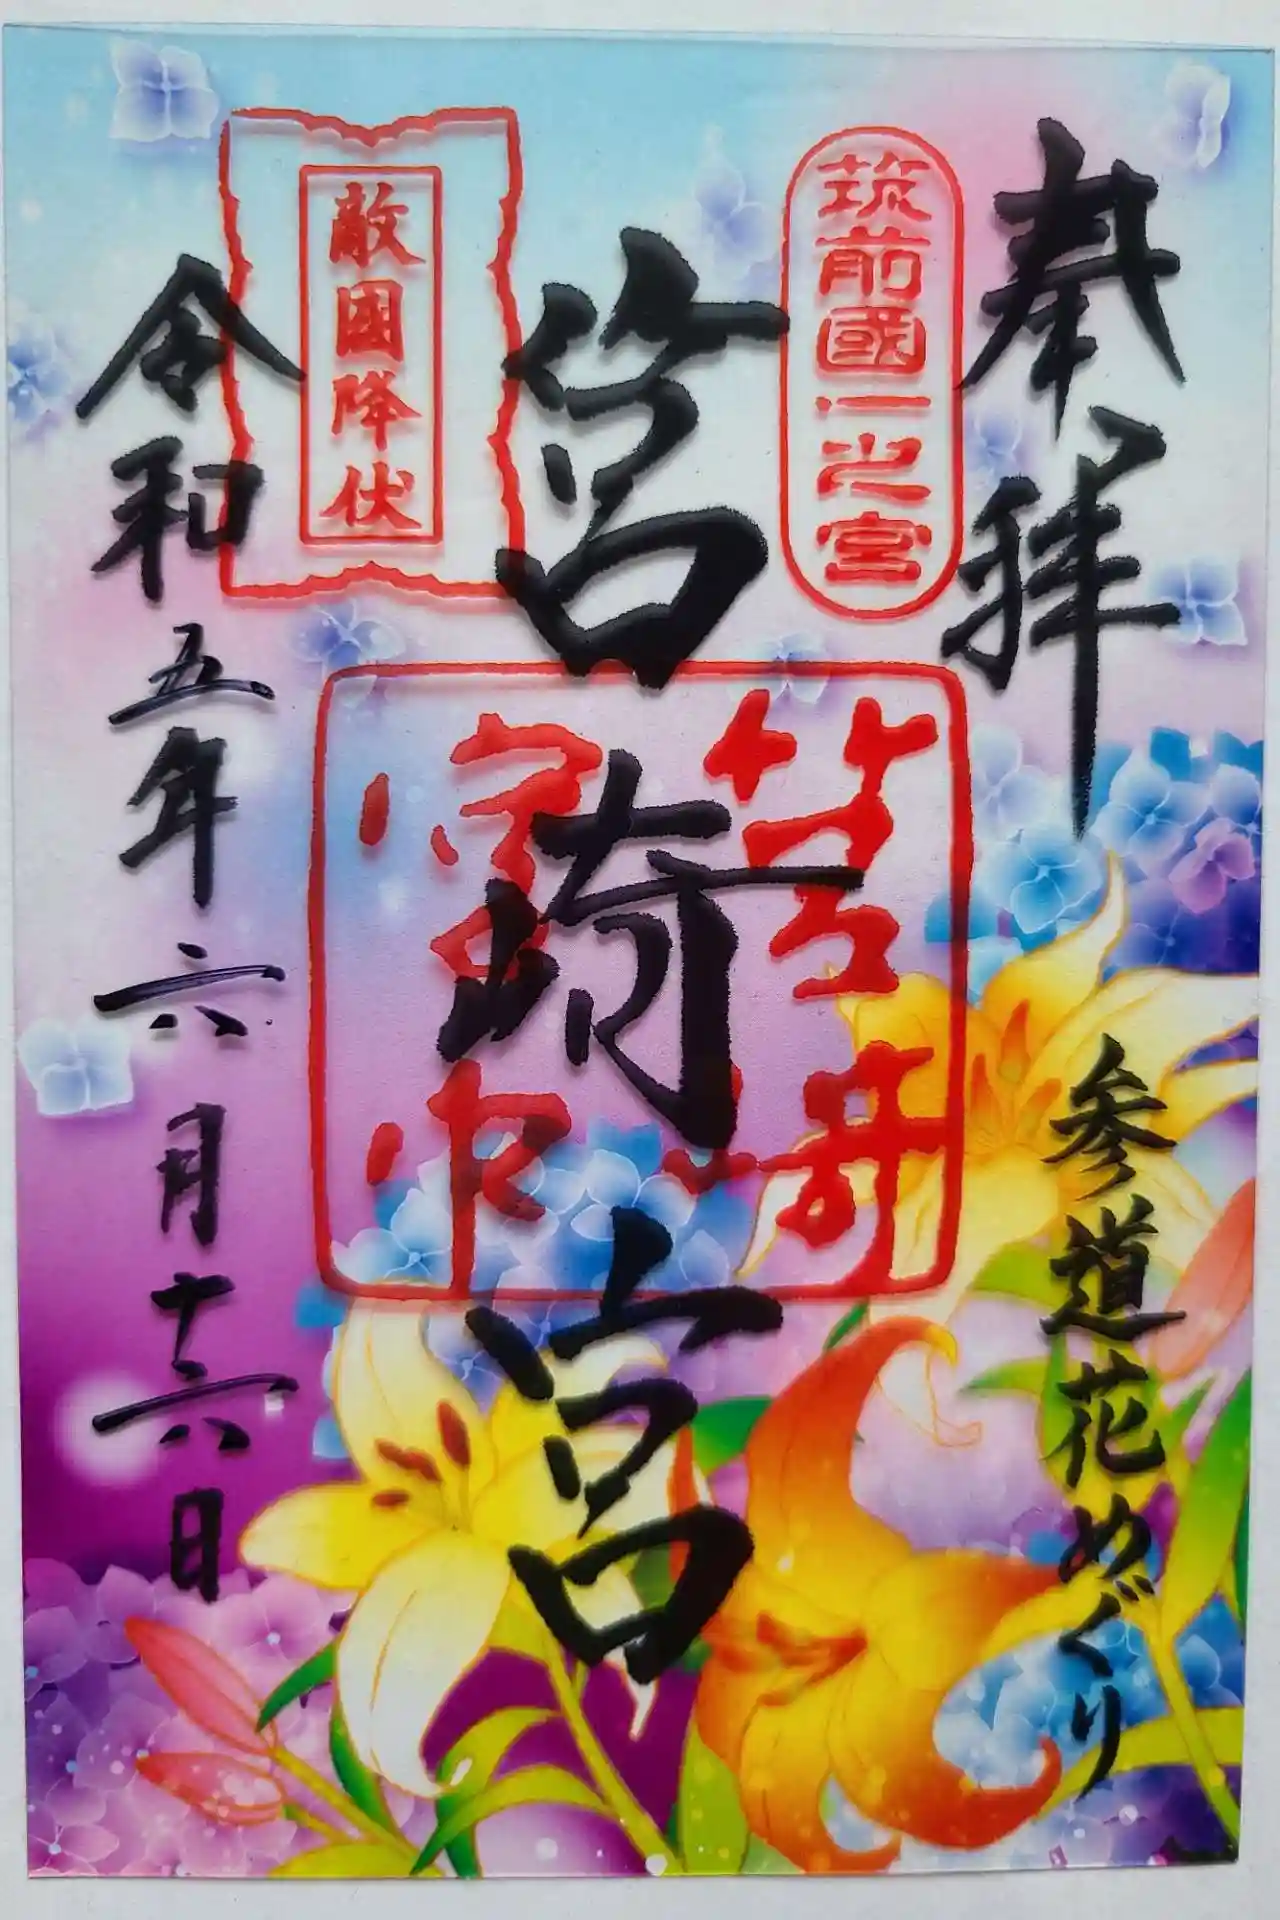 奉拝
参道花めぐり
筑前國一之宮
筥崎宮
筥崎宮印
敵国降伏
令和五年六月十六日